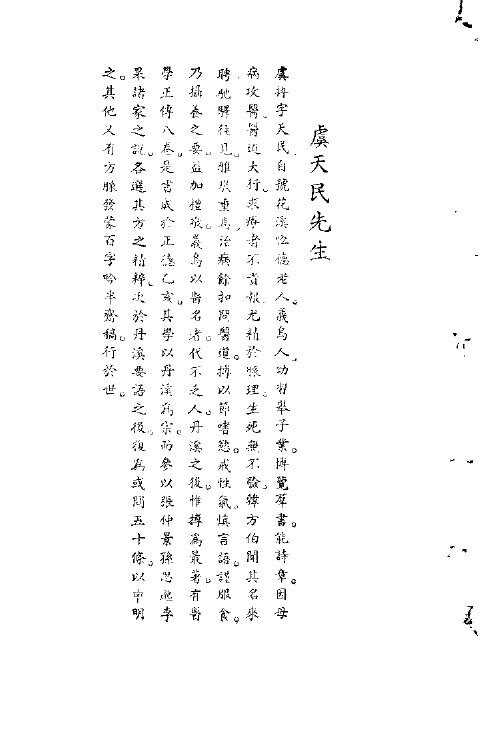 虞天民先生
虞摶字天民。自號花溪恒德老人。義烏人。幼習舉子業。博覽群書。能詩章。因母
病攻醫。醫道大行。求療者不責報。尤精於脉理。生死無不驗。韓方伯聞其名。來
聘。馳驛往見。雅琅重焉。治病餘扣問醫道。摶以節嗜慾。戒性氣。慎言語。謹服食。
乃攝養之要。益加禮敬。義烏以醫名者。代不乏人。丹溪之後。惟摶為最。著有醫
學正傳八卷。是書成於正德乙亥。其學以丹溪為宗。而參以張仲景孫思邈李
杲諸家之說。各選其方之精粹。次於丹溪要語之後。復為或問五十條。以申明
之。其他又有方脉發蒙百字吟半齋稿。行於世。